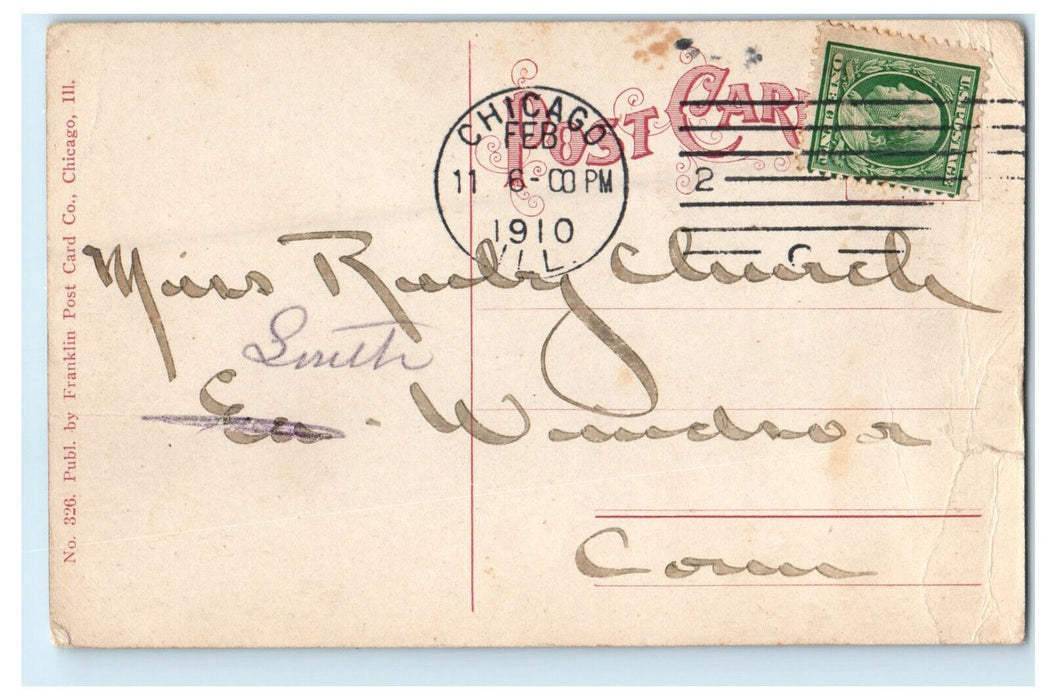 No. 326. Publ. by Franklin Post Card Co., Chicago, Ill.
POST CARD
CHICAGO
FEB
11 6-00 PM
1910
ILL.
2
C
U.S. POSTAGE
Miss Ruby Church
South
Ea. Windsor
Conn